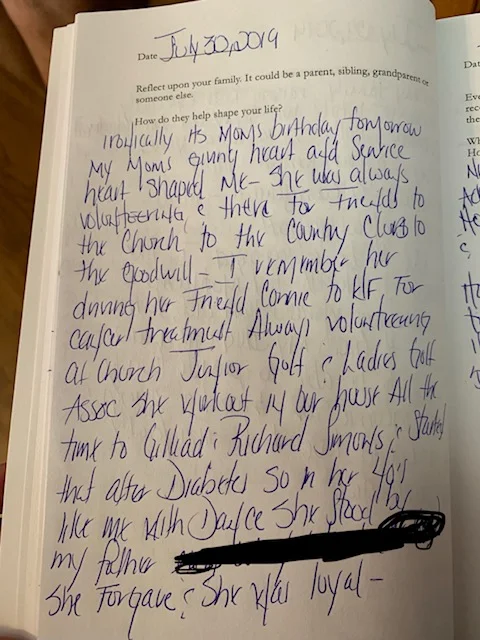 Date July 30, 2019
Reflect upon your family. It could be a parent, sibling, grandparent or
someone else.
How do they help shape your life?
Ironically its Moms birthday tomorrow
My Moms giving heart and Service
heart shaped Me - She was always
volunteering & there For Friends to
the Church to the Country Club to
the goodwill - I remember her
driving her Friend Connie to KF For
cancer treatment Always volunteering
at Church Junior Golf & Ladies Golf
Assoc She workout in our house All the
time to Gilliad & Richard Simons & Started
that after Diabetes So in her 40's
like me with Dance She Stood by
my father
She Forgave & She was loyal -
Dat
Eve
rec
the